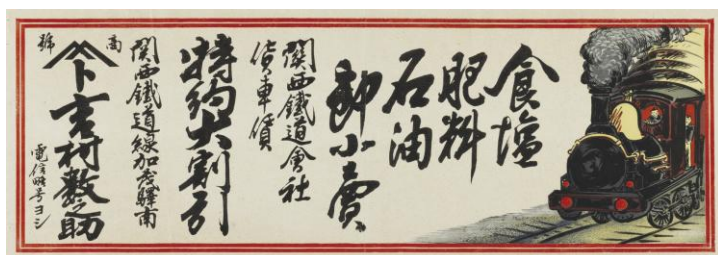 食塩
肥料
石油
卸小賣
関西鐵道會社
貨車賃
特約大割引
関西鐵道線加茂驛南
商號
卜吉村數之助
電信略号ヨシ